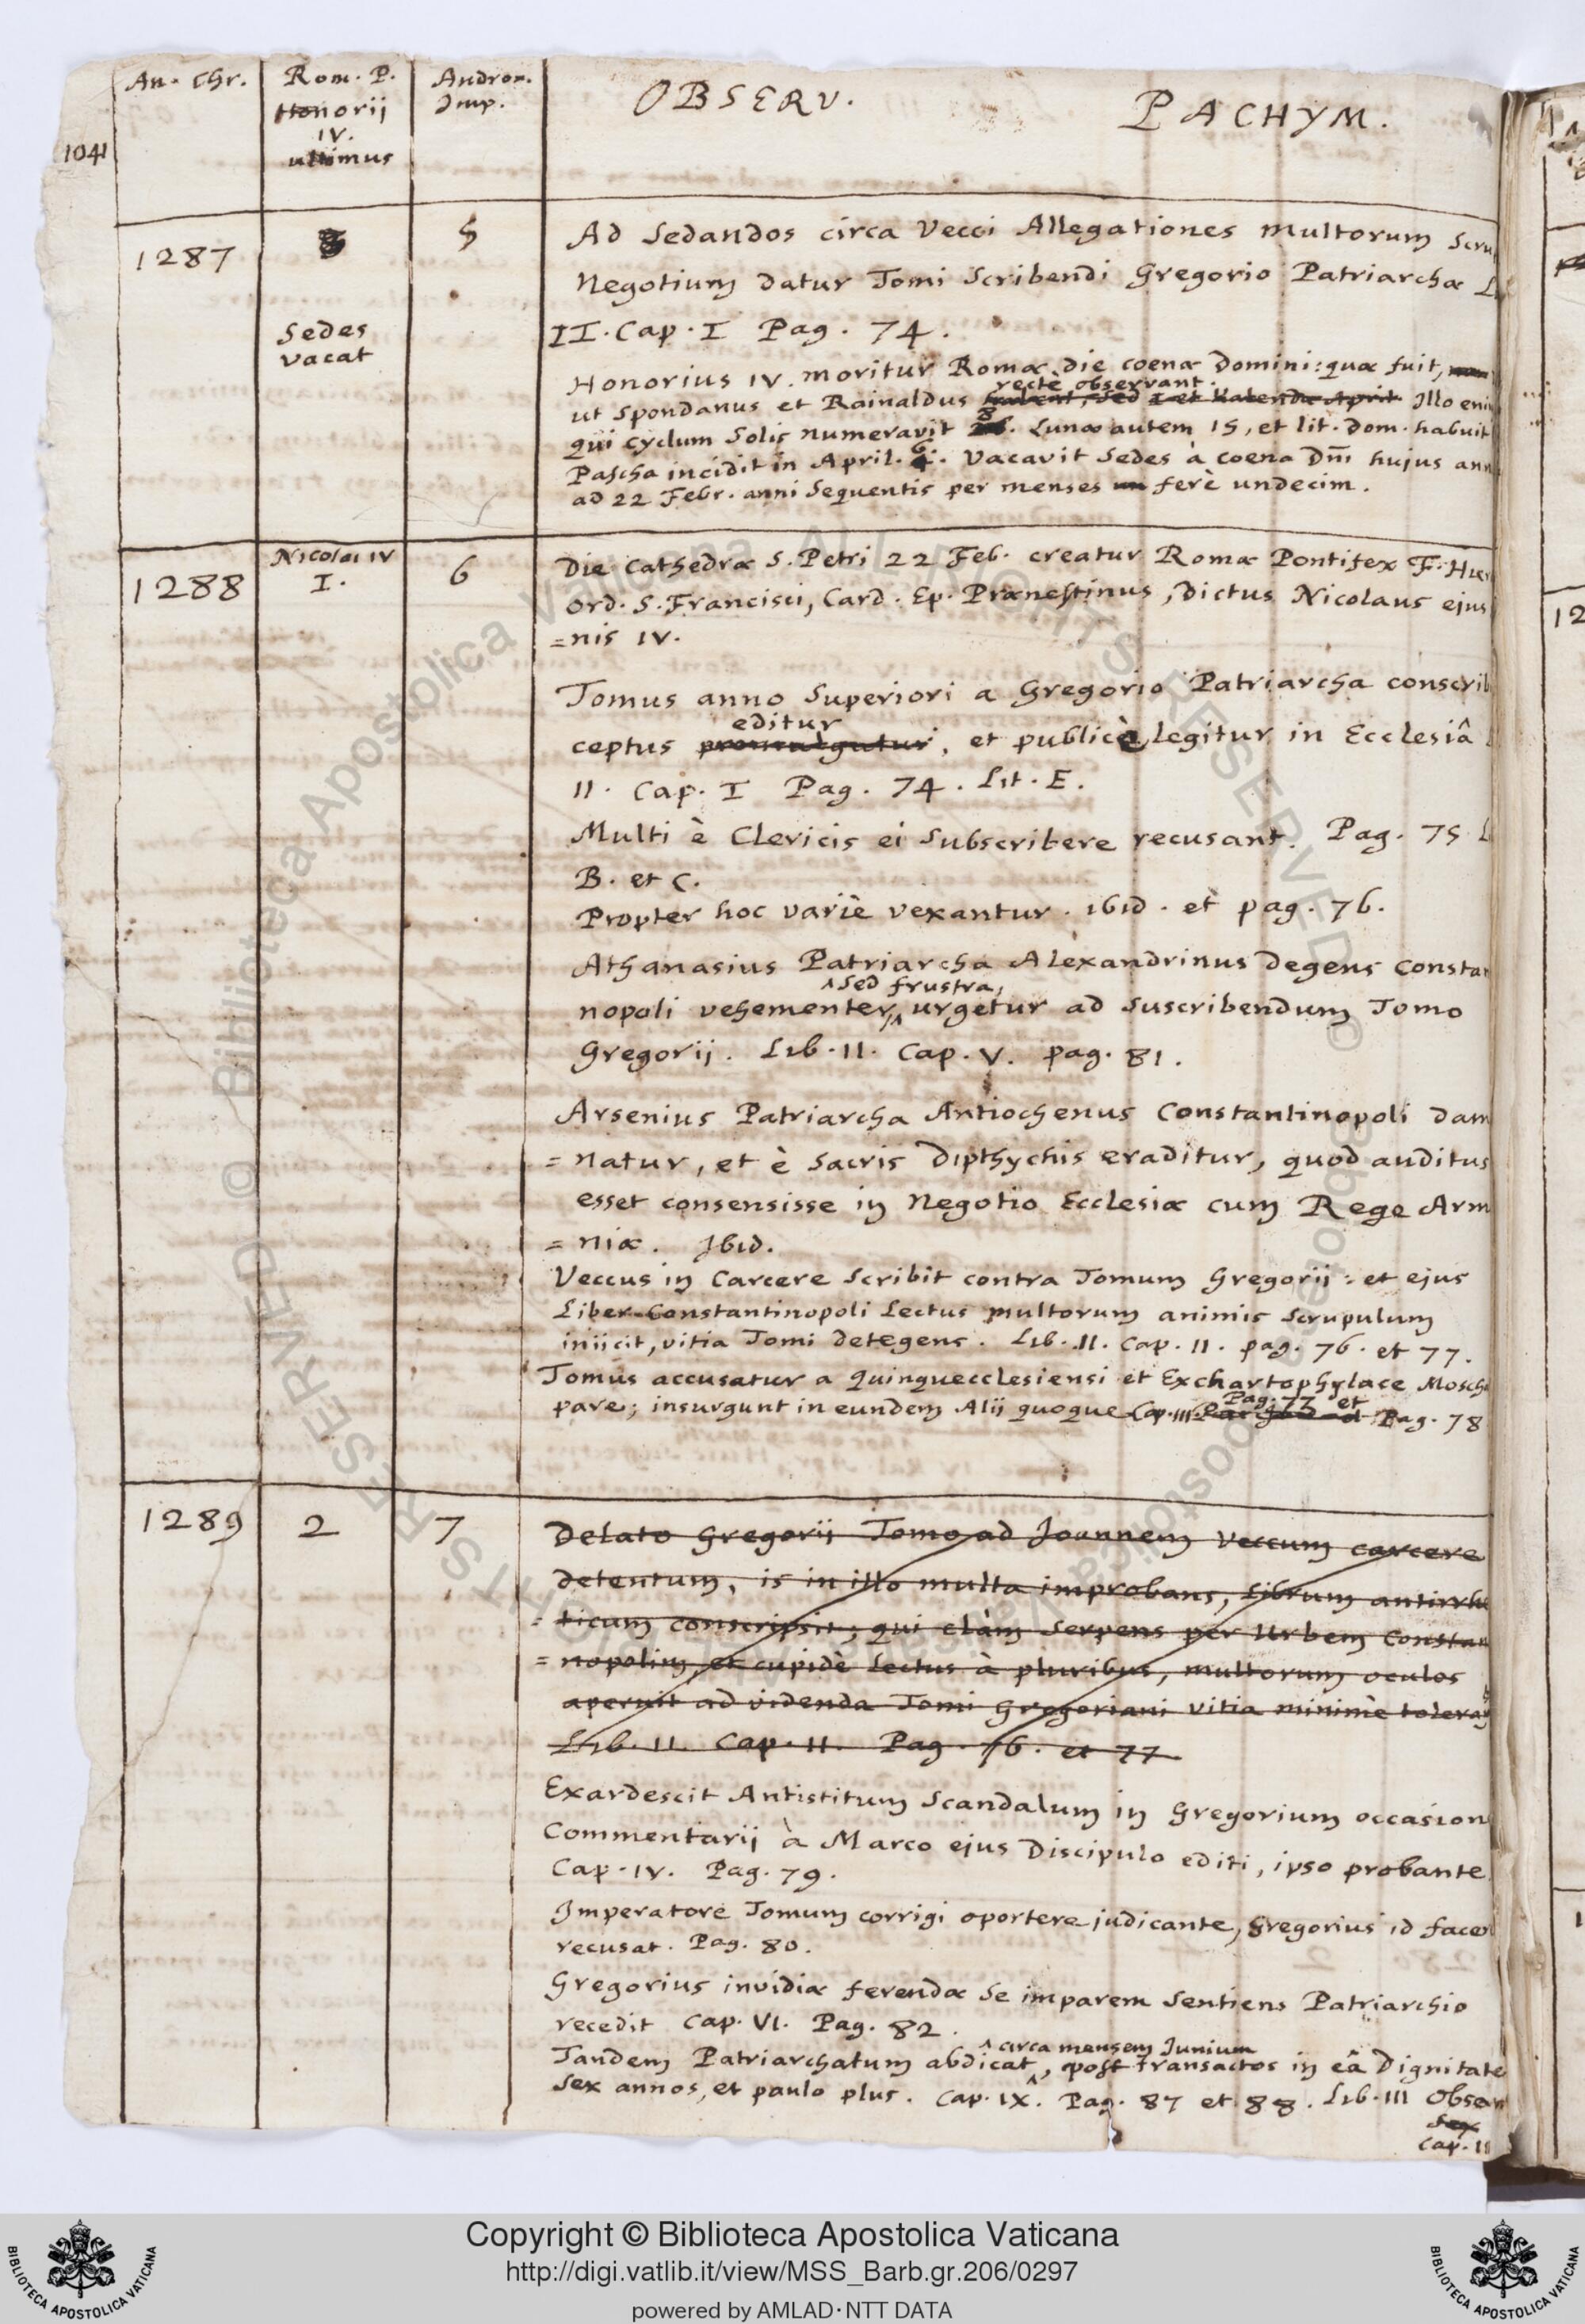 An. Chr.
Rom. P.
Honorij
IV.
ultimus
Andron.
Imp.
OBSERV. PACHYM.
1041
1287
5
Sedes
vacat
Ad Sedandos circa Vecci Allegationes multorum Scru
Negotium datur Tomi Scribendi Gregorio Patriarchæ L
II. Cap. I Pag. 74.
Honorius IV. moritur Romæ die coenæ Domini: quæ fuit,
recte observant.
ut Spondanus et Rainaldus habent, sed I et Kalendæ April Illo eni
8
qui cyclum Solis numeravit Lunæ autem 15, et lit. Dom. habuit
Pascha incidit in April. 6. Vacavit Sedes à coena Dñi hujus ann
ad 22 Febr. anni Sequentis per menses ferè undecim.
1288
Nicolai IV
I.
6
Die Cathedræ S. Petri 22 Feb. creatur Romæ Pontifex F. Hier
Ord. S. Francisci, Card. Ep. Prænestinus, Dictus Nicolaus ejus
=nis IV.
Tomus anno Superiori a Gregorio Patriarcha conscrib
editur
ceptus promulgatur, et publicè legitur in Ecclesiâ
II. Cap. I Pag. 74. Lit. E.
Multi è Clericis ei Subscribere recusant. Pag. 75 L
B. et C.
Propter hoc variè vexantur. ibid. et pag. 76.
Athanasius Patriarcha Alexandrinus Degens Constan
^ Sed frustra,
nopoli vehementer,^ urgetur ad Suscribendum Tomo
Gregorij. Lib. II. Cap. V. pag. 81.
Arsenius Patriarcha Antiochenus Constantinopoli Dam
=natur, et è Sacris Dipthychis eraditur, quod auditus
esset consensisse in Negotio Ecclesiæ cum Rege Arm
=niæ. Ibid.
Veccus in Carcere Scribit contra Tomum Gregorij: et ejus
Liber Constantinopoli Lectus multorum animis Scrupulum
iniicit, vitia Tomi Detegens. Lib. II. Cap. II. pag. 76. et 77.
Tomus accusatur a Quinquecclesiensi et Exchartophylace Mosch
Pag. 77 et
pare; insurgunt in eundem Alij quoque Cap. III Pag. 78
1289
2
7
Delato Gregorij Tomo ad Joannem Veccum carcere
Detentum, is in illo multa improbans, Librum antirrhe
=ticum conscripsit; qui clàm Serpens per Urbem Constan
=nopolim, et cupidè Lectus à pluribus, multorum oculos
aperuit ad videnda Tomi Gregoriani vitia minimè tolera
Lib. II. Cap. II. Pag. 76. et 77
Exardescit Antistitum Scandalum in Gregorium occasion
Commentarij à Marco ejus Discipulo editi, ipso probante
Cap. IV. Pag. 79.
Imperatore Tomum corrigi oportere judicante, Gregorius id face
recusat. Pag. 80.
Gregorius invidiæ ferendæ Se imparem Sentiens Patriarchio
recedit Cap. VI. Pag. 82.
^ circa mensem Junium
Tandem Patriarchatum abdicat^, post transactos in eâ Dignitate
Sex annos, et paulo plus. Cap. IX. Pag. 87 et 88. Lib. III Obser
Cap. II
12
Copyright © Biblioteca Apostolica Vaticana
http://digi.vatlib.it/view/MSS_Barb.gr.206/0297
powered by AMLAD·NTT DATA
BIBLIOTECA APOSTOLICA VATICANA
BIBLIOTECA APOSTOLICA VATICANA